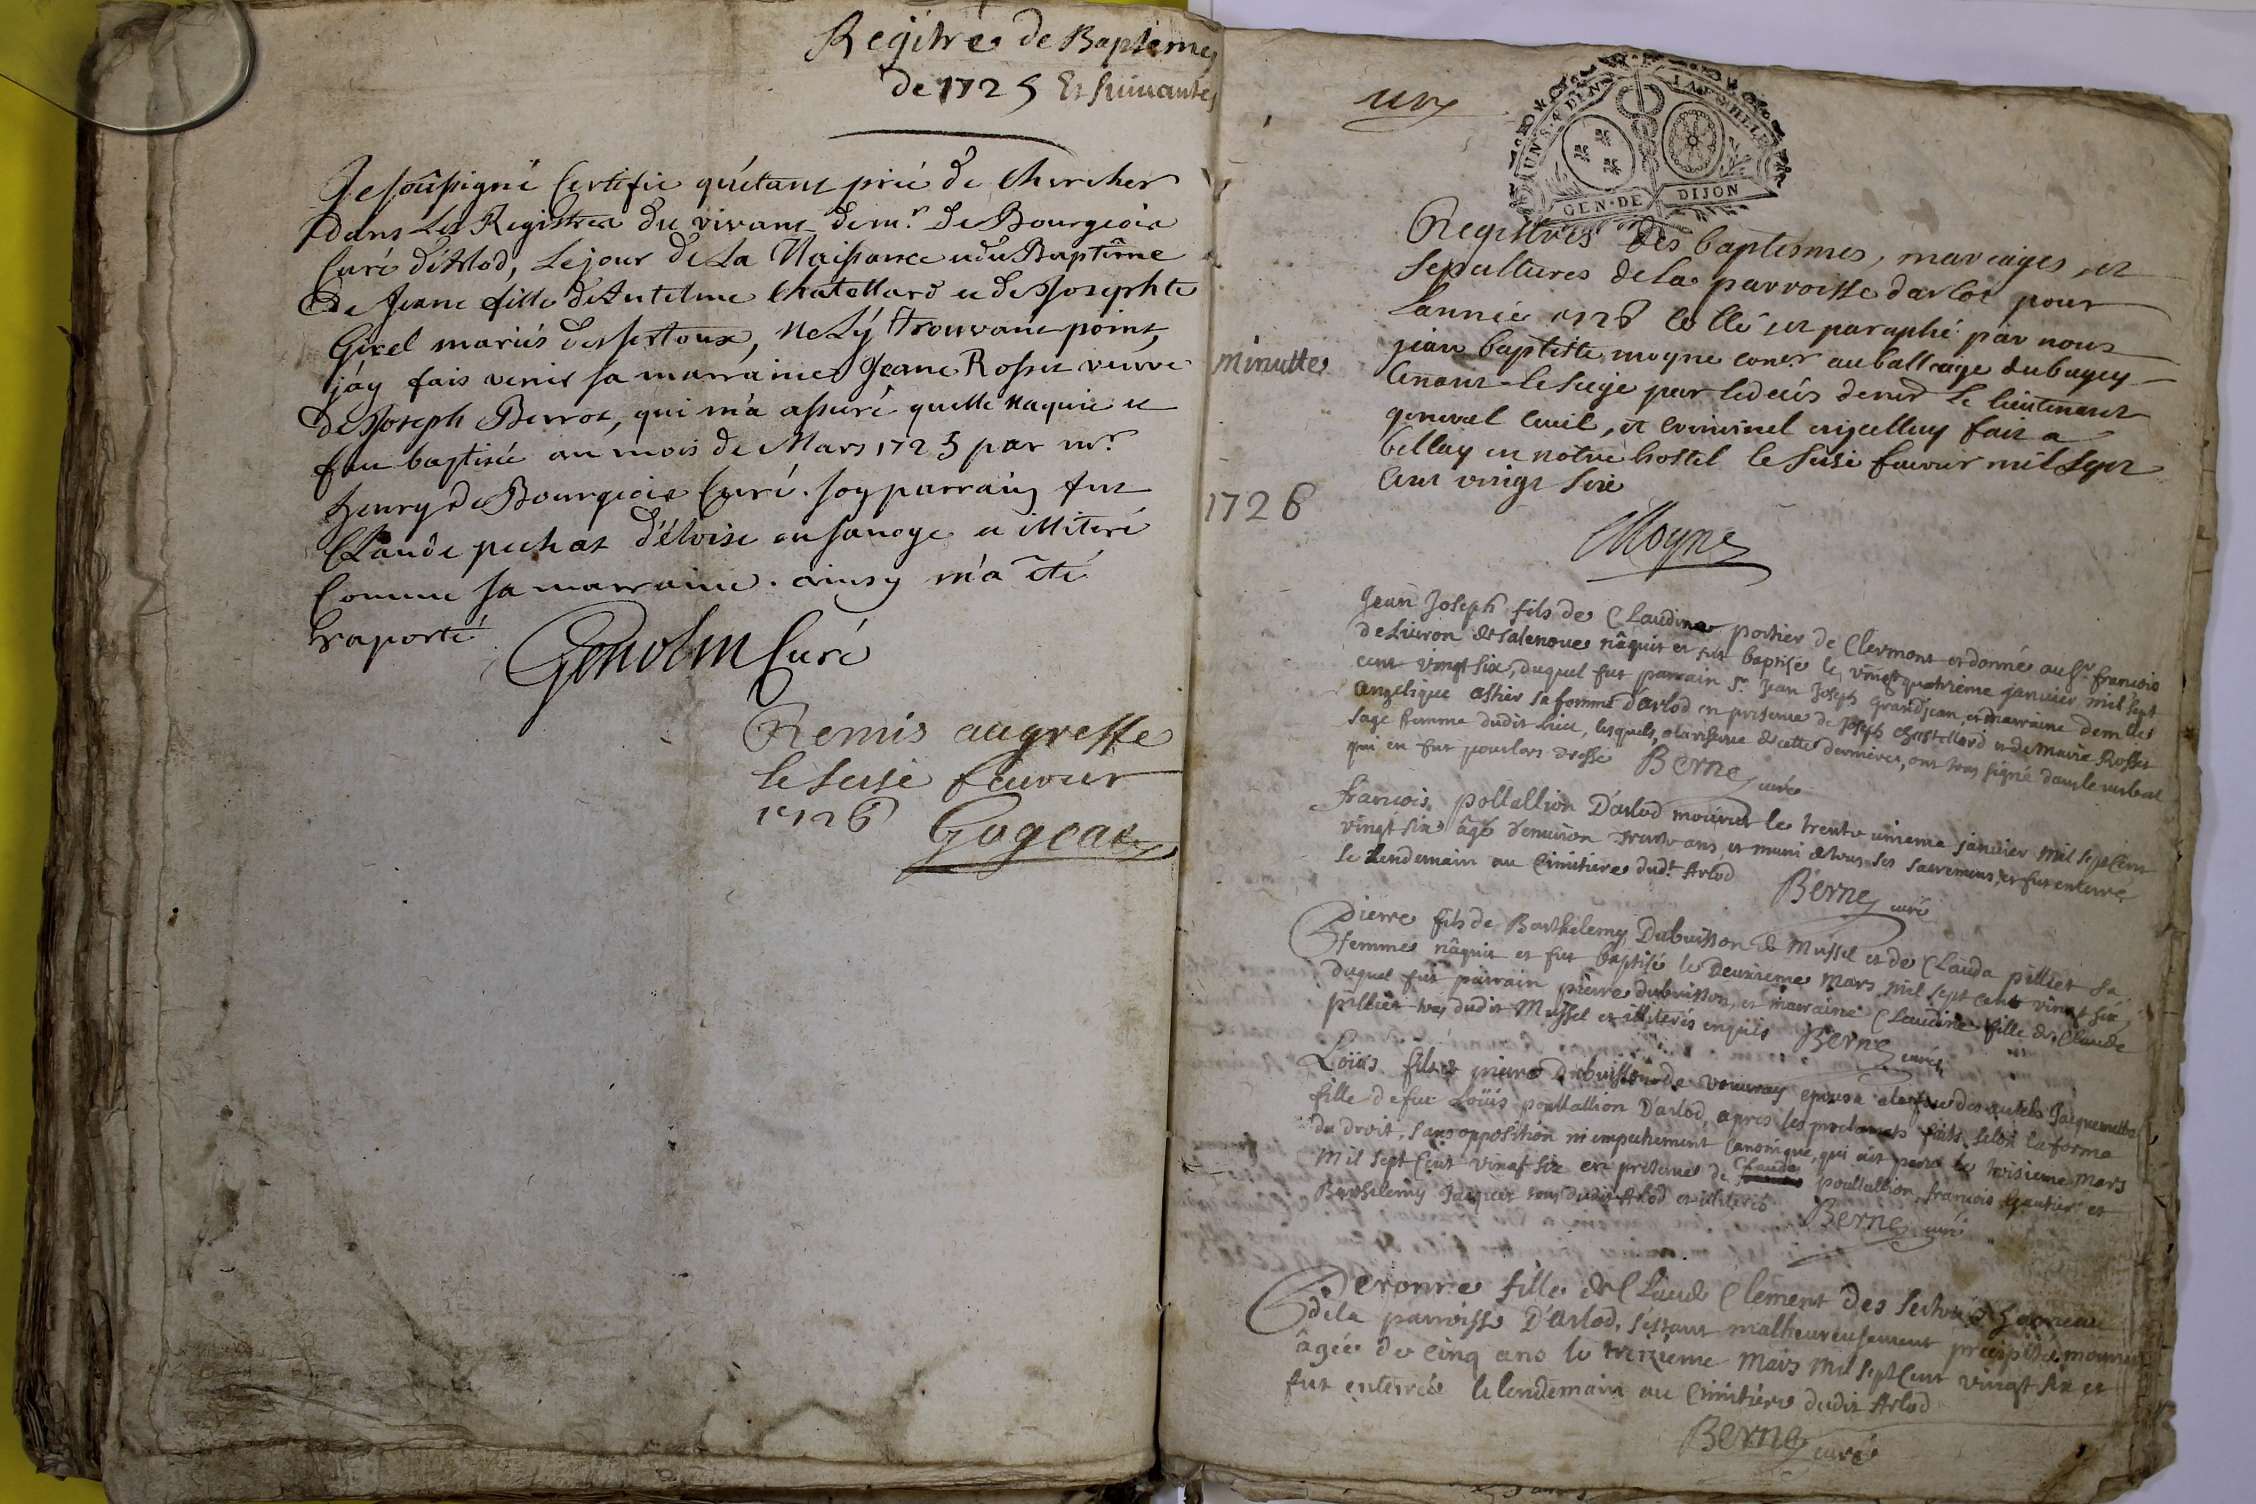 Regitre de Baptemes
de 1725 Et suivantes
Je soûssigné Certifie qu'étant prié de chercher
dans Les Registres du vivant de mr. De Bourgeois
Curé d'Arlod, Le jour de La Naissance u du Baptême
De Jeane fille d'Antelme Chatellard u de Josephte
Girel mariés des sertoux, ne L'ÿ trouvant point,
j'áy fais venir sa marraine Jeane Rosset veuve
de Joseph Berrot, qui m'a assuré quelle naquit et
fut baptisée au mois de Mars 1725 par mr.
henry de Bourgeois Curé. son parrain fut
Claude pechat d'éloise en savoye u illiteré
Comme sa marraine. ainsy m'a êté
raporté
Genolin Curé
Remis au greffe
le seise feuvrier
1726 Gogeat
un
UNS. 4 DEN LA FEUILLE
GEN. DE DIJON
Registres des baptesmes, mariages, et
sepultures de la parroisse darlot pour
Lannée 1726 Collé et paraphé par nous
jean baptiste moyne coner au balliage du bugey
tenant le siege par le decés de mr le lieutenant
general civil, et criminel en icelluy fait a
bellay en notre hostel le seise feuvrier mil sept
Cent vingt sixe
Minutte
1726
Moyne
Jean Joseph fils de Claudine portier de Clermont et donné au Sr. francois
de Livron de Salenove nâquit et fut baptisé le vingt quatrième janvier mil sept
cent vingt six, duquel fut parrain Sr. Jean Joseph Grandjean, et marraine demlle
Angelique astier sa femme d'arlod en présence de joseph Chastellard et de Marie Rosset
sage femme dudit lieu, lesquels, a la reserve de cette derniere, ont tous signé dans le verbal
qui en fut pour lors dressé Berne curé
francois pollallion D'arlod mourut le trente unieme janvier mil sept Cent
vingt six âgé d'environ trente ans et muni de tous ses sacremens, et fut enterré
le Lendemain au Cimitiere dudt Arlod Berne curé
Pierre fils de Barthelemy Dubuisson de Mussel et de Clauda pilliet sa
femme nâquit et fut baptisé le Deuxieme Mars mil sept cent vingt six
duquel fut parrain pierre dubuisson, et marraine Claudine fille de Claude
pilliet tous dudit Mussel et illiterés enquis Berne curé
Loüis fils de pierre Dubuisson de vouvray epousa a la face des autels Jaquemette
fille de feu Loüis poullallion D'arlod, apres les proclamats faits selon la forme
du droit, sans opposition ni empechement Canonique, qui ait paru le troisieme Mars
Mil sept Cent vingt six en présence de Claude poullallion, francois Gautier et
Barthelemy Jaquet tous dudit Arlod et illiterés Berne curé
Peronne fille de Claude Clement des
de la parroisse D'Arlod, s'estant malheureusement précipité mourut
âgée de cinq ans le treizieme Mars Mil sept Cent vingt six et
fut enterrée le lendemain au Cimitiere dudit Arlod
Berne curé